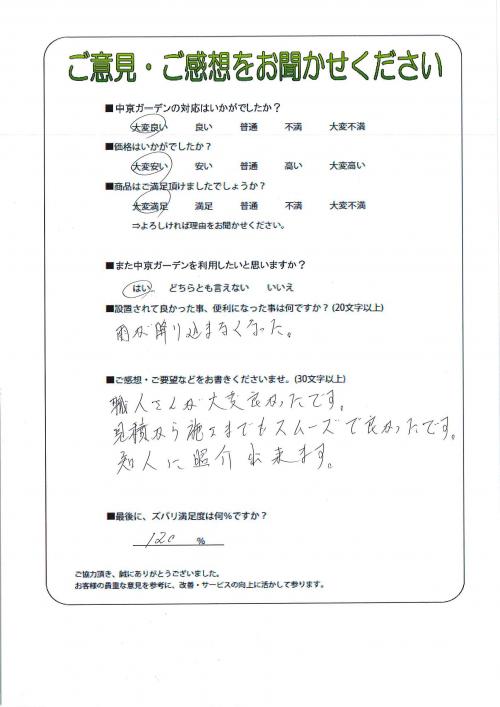 ご意見・ご感想をお聞かせください
■中京ガーデンの対応はいかがでしたか？
大変良い 良い 普通 不満 大変不満
■価格はいかがでしたか？
大変安い 安い 普通 高い 大変高い
■商品はご満足頂けましたでしょうか？
大変満足 満足 普通 不満 大変不満
⇒よろしければ理由をお聞かせください。
■また中京ガーデンを利用したいと思いますか？
はい どちらとも言えない いいえ
■設置されて良かった事、便利になった事は何ですか？(20文字以上)
雨が降り込まなくなった。
■ご感想・ご要望などをお書きくださいませ。(30文字以上)
職人さんが大変良かったです。
見積から施工までもスムーズで良かったです。
知人に紹介出来ます。
■最後に、ズバリ満足度は何％ですか？
120 ％
ご協力頂き、誠にありがとうございました。
お客様の貴重な意見を参考に、改善・サービスの向上に活かして参ります。